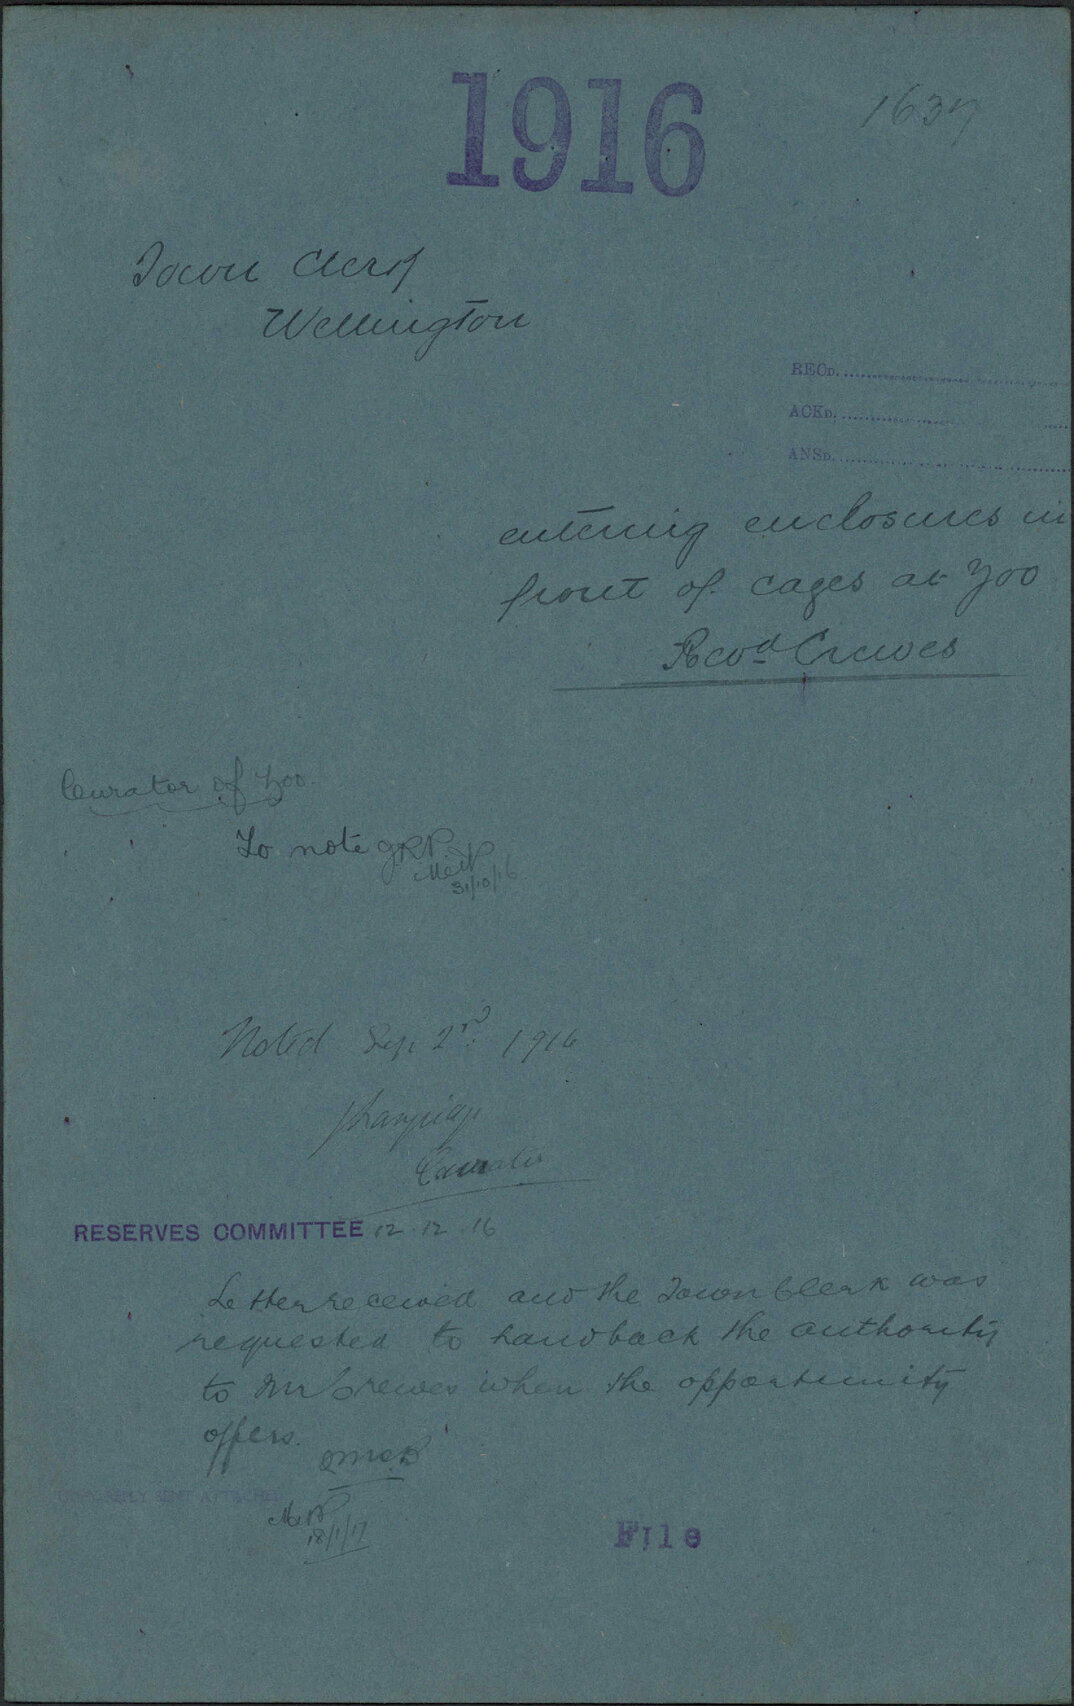 1916
1637
Town Clerk
Wellington
RECD.
ACKD.
ANSD.
entering enclosures in
front of cages at Zoo
Revd Crewes
Curator of Zoo.
To note JRP
31/10/16
Noted Sep 2nd 1916
Curator
RESERVES COMMITTEE 12.12.16
Letter received and the Town Clerk was
requested to hand back the authority
to Mr Crewes when the opportunity
offers.
REPLY SENT ATTACHED
18/1/17
File